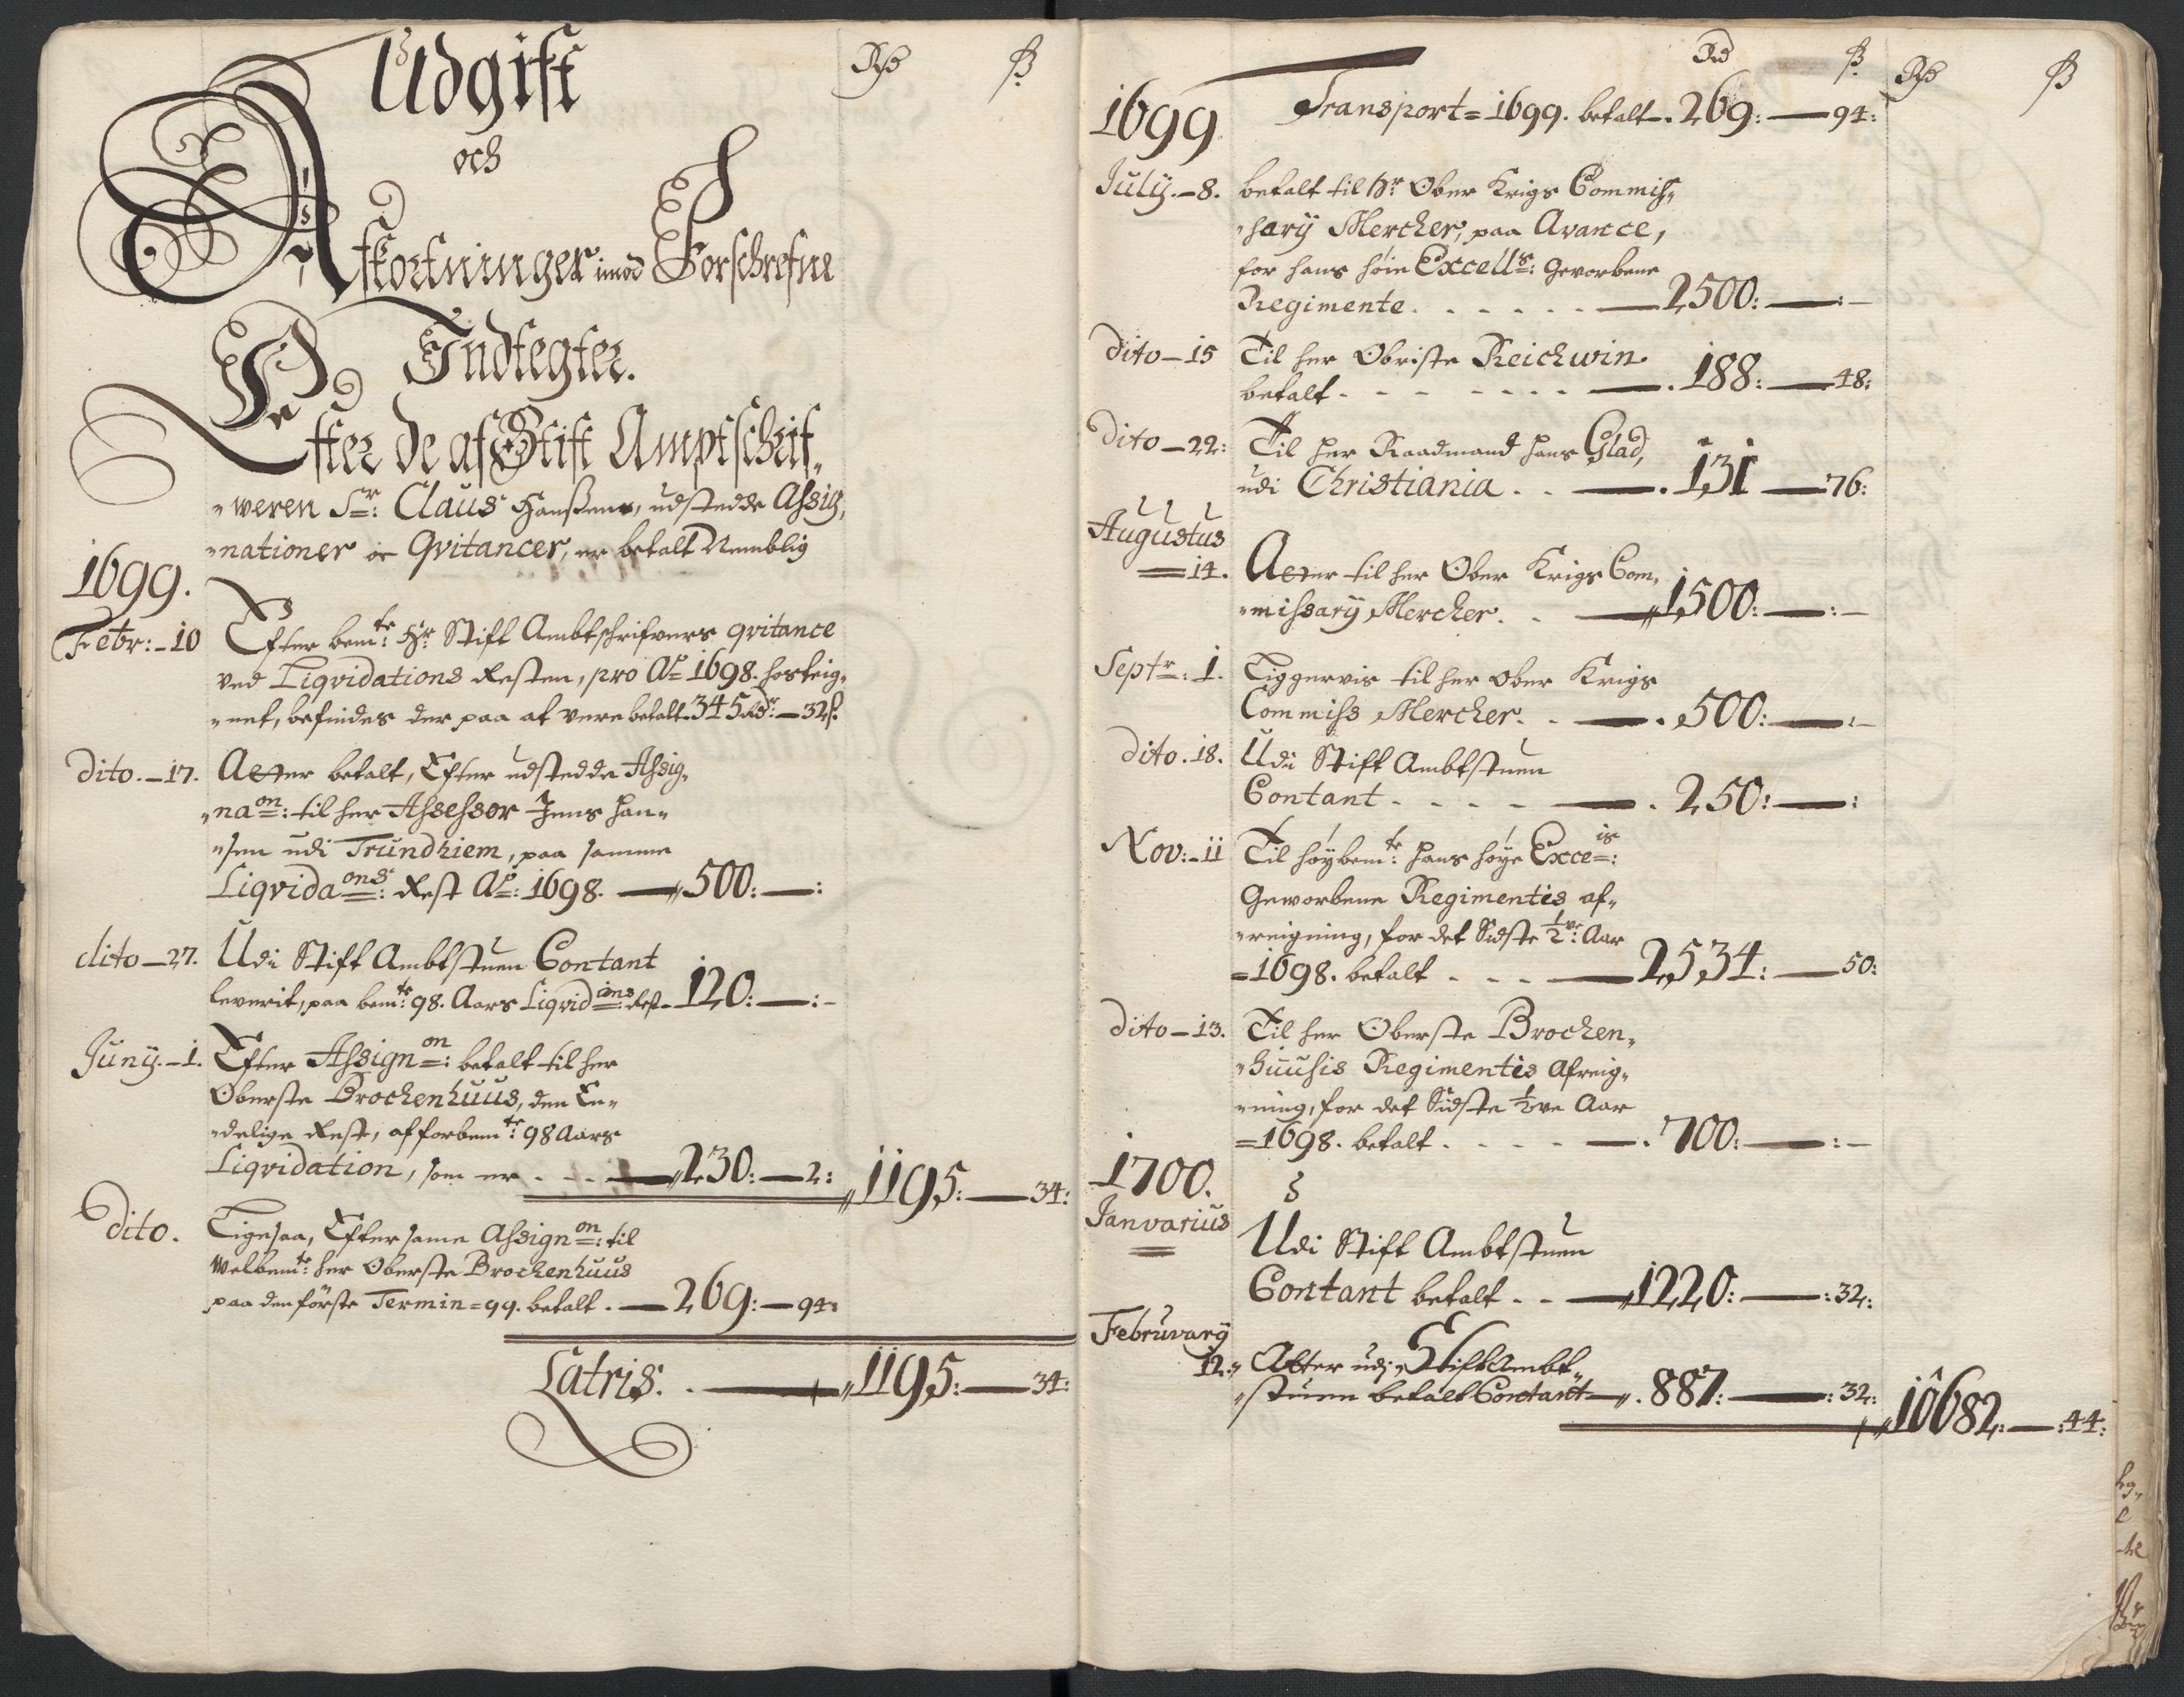 Udgift
och
Afkortninger imod Forschrefne
Indtegter.
Effter de af Stift Amptschrif„
„weren Sr: Claus Hanßens, udstedde Assig„
„nationer oc Qvitancer, er betalt Nemblig
Rdr ß
1699.
Febr:–10 Efter bemte: Hr Stift Ambtschrifvers qvitance
ved Liqvidations Resten, pro Ao 1698. hosteig„
„net, befindes der paa at vere betalt 345 Rdr:–32 s.
dito.–17. Atter betalt, Efter udstedde Assig„
„naon: til her Assessor Jens Han„
„sen udi Trundhiem, paa samme
Liqvidaons: Rest Ao: 1698. — 500: — :
dito–27. Udi Stift Ambtstuen Contant
leverit, paa bemte: 98. Aars Liqvidions: Rest– 120: — : –
Juny.–1. Efter Assignon: betalt til her
Oberste Brochenhuus, den En„
„delige Rest, af forbemte: 98 Aars
Liqvidation, som er . - . - — 230: — 2: 1195: — 34:
dito. Ligesaa, Efter same Assignon: til
Welbemte: her Oberste Brochenhuus
paa den förste Termin = 99. betalt . — 269: — 94:
Latris. . — 1195: — 34:
Rd ß Rdr ß
1699 Transport = 1699. betalt . 269: — 94:
July.–8. betalt til Hr Ober Krigs Commis„
„sary Mercher, paa Avance,
for hans höie Excells: Gevorbene
Regimente . . - . . - — 2500: — : –
dito–15 Til her Obriste Reichwin
betalt - - - - - - - — . 188: — 48:
dito–22: Til her Raadmand Hans Glad,
udi Christiania . . — . 131 — 76:
Augustus
=14. Atter til her Ober Krigs Com„
„missary Mercher. . — 1500: — : –
Septr: 1. Liggervis til her Ober Krigs
Commiss Mercher. . — . 500: — : –
dito. 18. Udi Stift Ambtstuen
Contant . - . - . - — . 250: — :
Nov:–11 Til höybemte: hans höye Exceis:
Geworbene Regimentes af„
„reigning, for det Sidste ½ve: Aar
=1698. betalt . - - - — 2534: — 50:
dito–13. Til her Oberste Brochen„
„huusis Regimentes Afreig„
„ning, for det Sidste ½ve Aar
=1698. betalt . - - . - — . 700: — : –
1700.
Janvarius
Udi Stift Ambtstuen
Contant betalt . - — 1220: — : 32:
Februvary
12: Atter udj Stift Ambt„
„stuen betalt Contant — . 887: — : 32: 10682: — : 44: